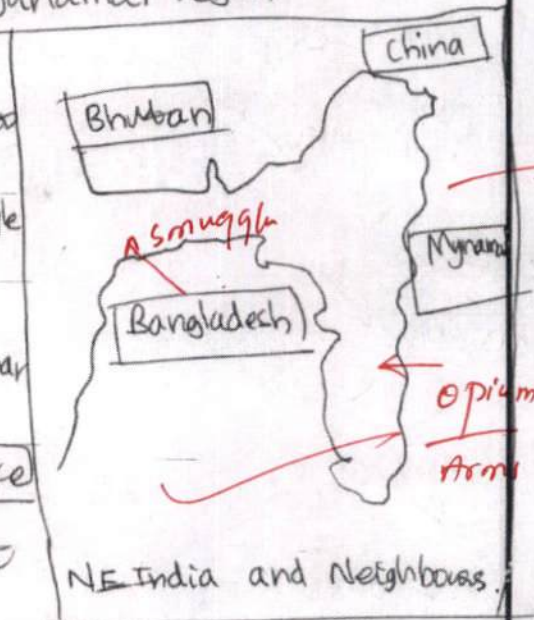 China
Bhutan
smuggle
Myanmar
Bangladesh
Opium
Arms
NE India and Neighbours.